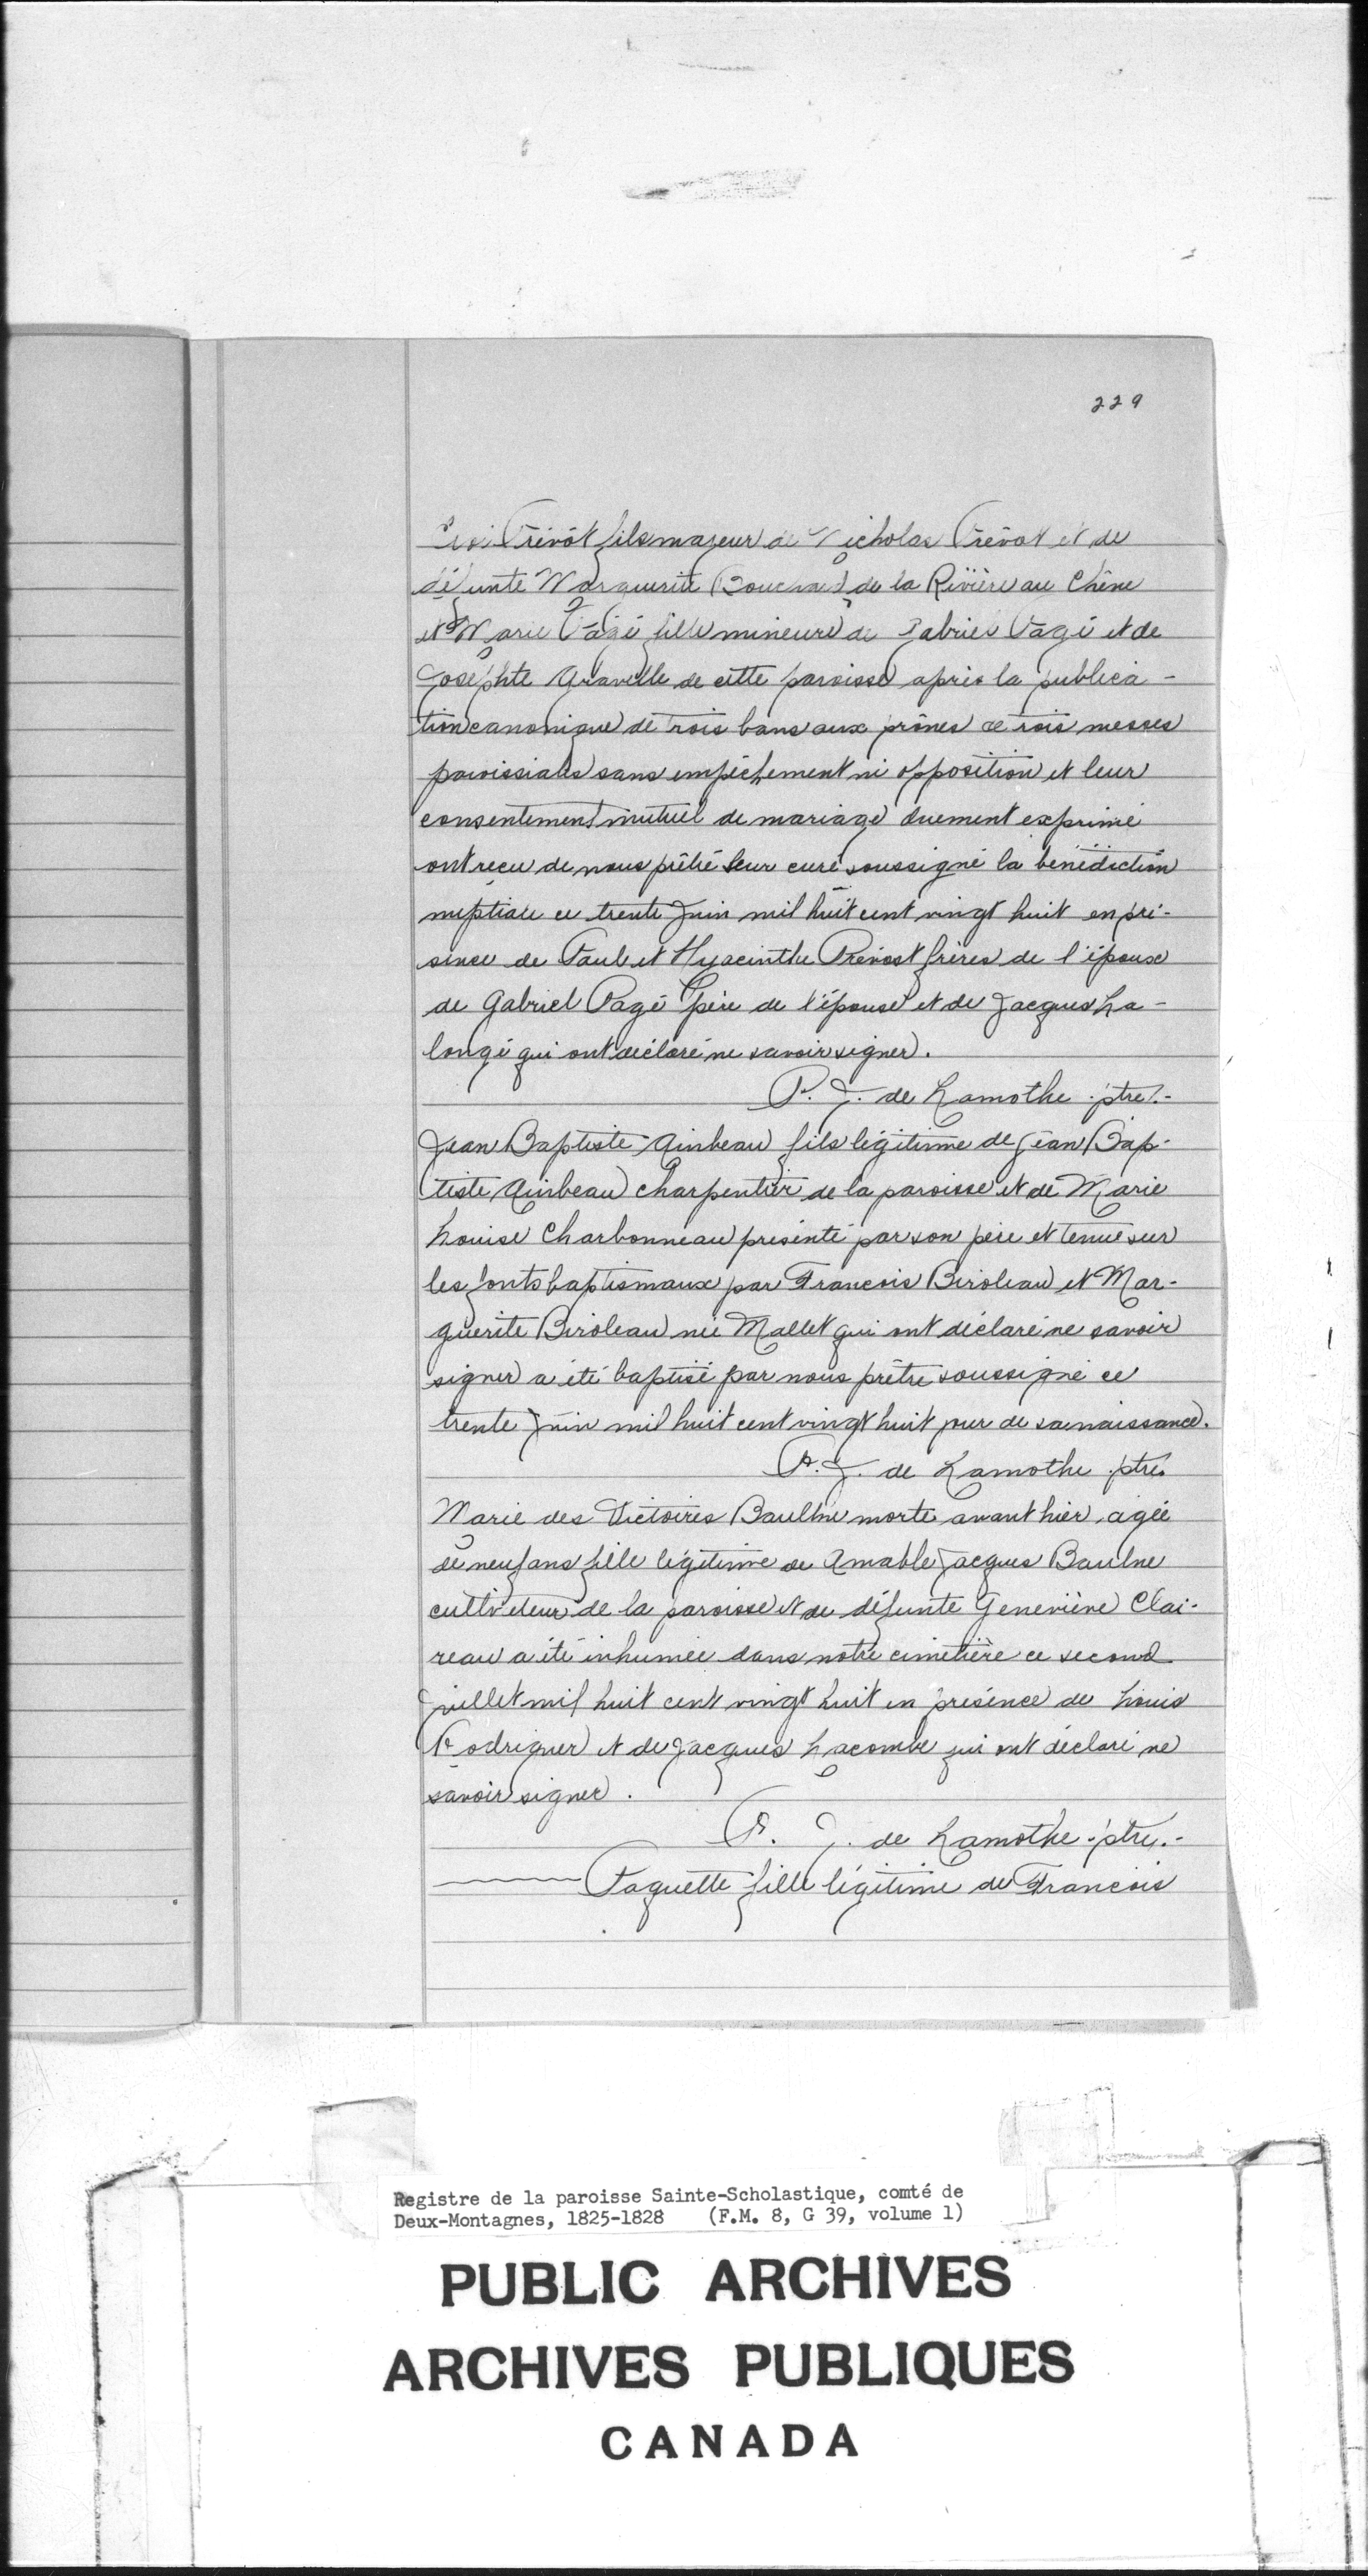 229
Prévôt fils majeur de Nicholas Prévot et de
défunte Marguerite Bouchard de la Rivière au Chêne
et Marie Pagé fille mineure de Gabriel Pagé et de
Josephte Gravelle de cette paroisse après la publica-
tion canonique de trois bans aux prônes de trois messes
paroissiales sans empêchement ni opposition et leur
consentement mutuel de mariage duement exprimé
ont reçu de nous prêtre leur curé soussigné la bénédiction
nuptiale ce trente Juin mil huit cent vingt huit en pré-
sence de Paul et Hyacinthe Prévost frères de l'époux
de Gabriel Pagé père de l'épouse et de Jacques La-
longé qui ont déclaré ne savoir signer.
P. J. de Lamothe ptre.-
Jean Baptiste fils légitime de Jean Bap-
tiste charpentier de la paroisse et de Marie
Louise Charbonneau présenté par son père et tenu sur
les fonts baptismaux par Francois Biroleau et Mar-
guerite Biroleau née Mallet qui ont déclaré ne savoir
signer a été baptisé par nous prêtre soussigné ce
trente Juin mil huit cent vingt huit jour de sa naissance.
P. J. de Lamothe ptre.
Marie des Victoires Baulne morte avant hier, agée
de neuf ans fille légitime de Amable Jacques Baulne
cultivateur de la paroisse et de défunte Geneviève Clai-
reau a été inhumée dans notre cimetière ce second
juillet mil huit cent vingt huit en présence de Louis
Rodriguer et de Jacques Lacombe qui ont déclaré ne
savoir signer.
P. J. de Lamothe ptre.-
Paquette fille légitime de Francois
Registre de la paroisse Sainte-Scholastique, comté de
Deux-Montagnes, 1825-1828 (F.M. 8, G 39, volume 1)
PUBLIC ARCHIVES
ARCHIVES PUBLIQUES
CANADA